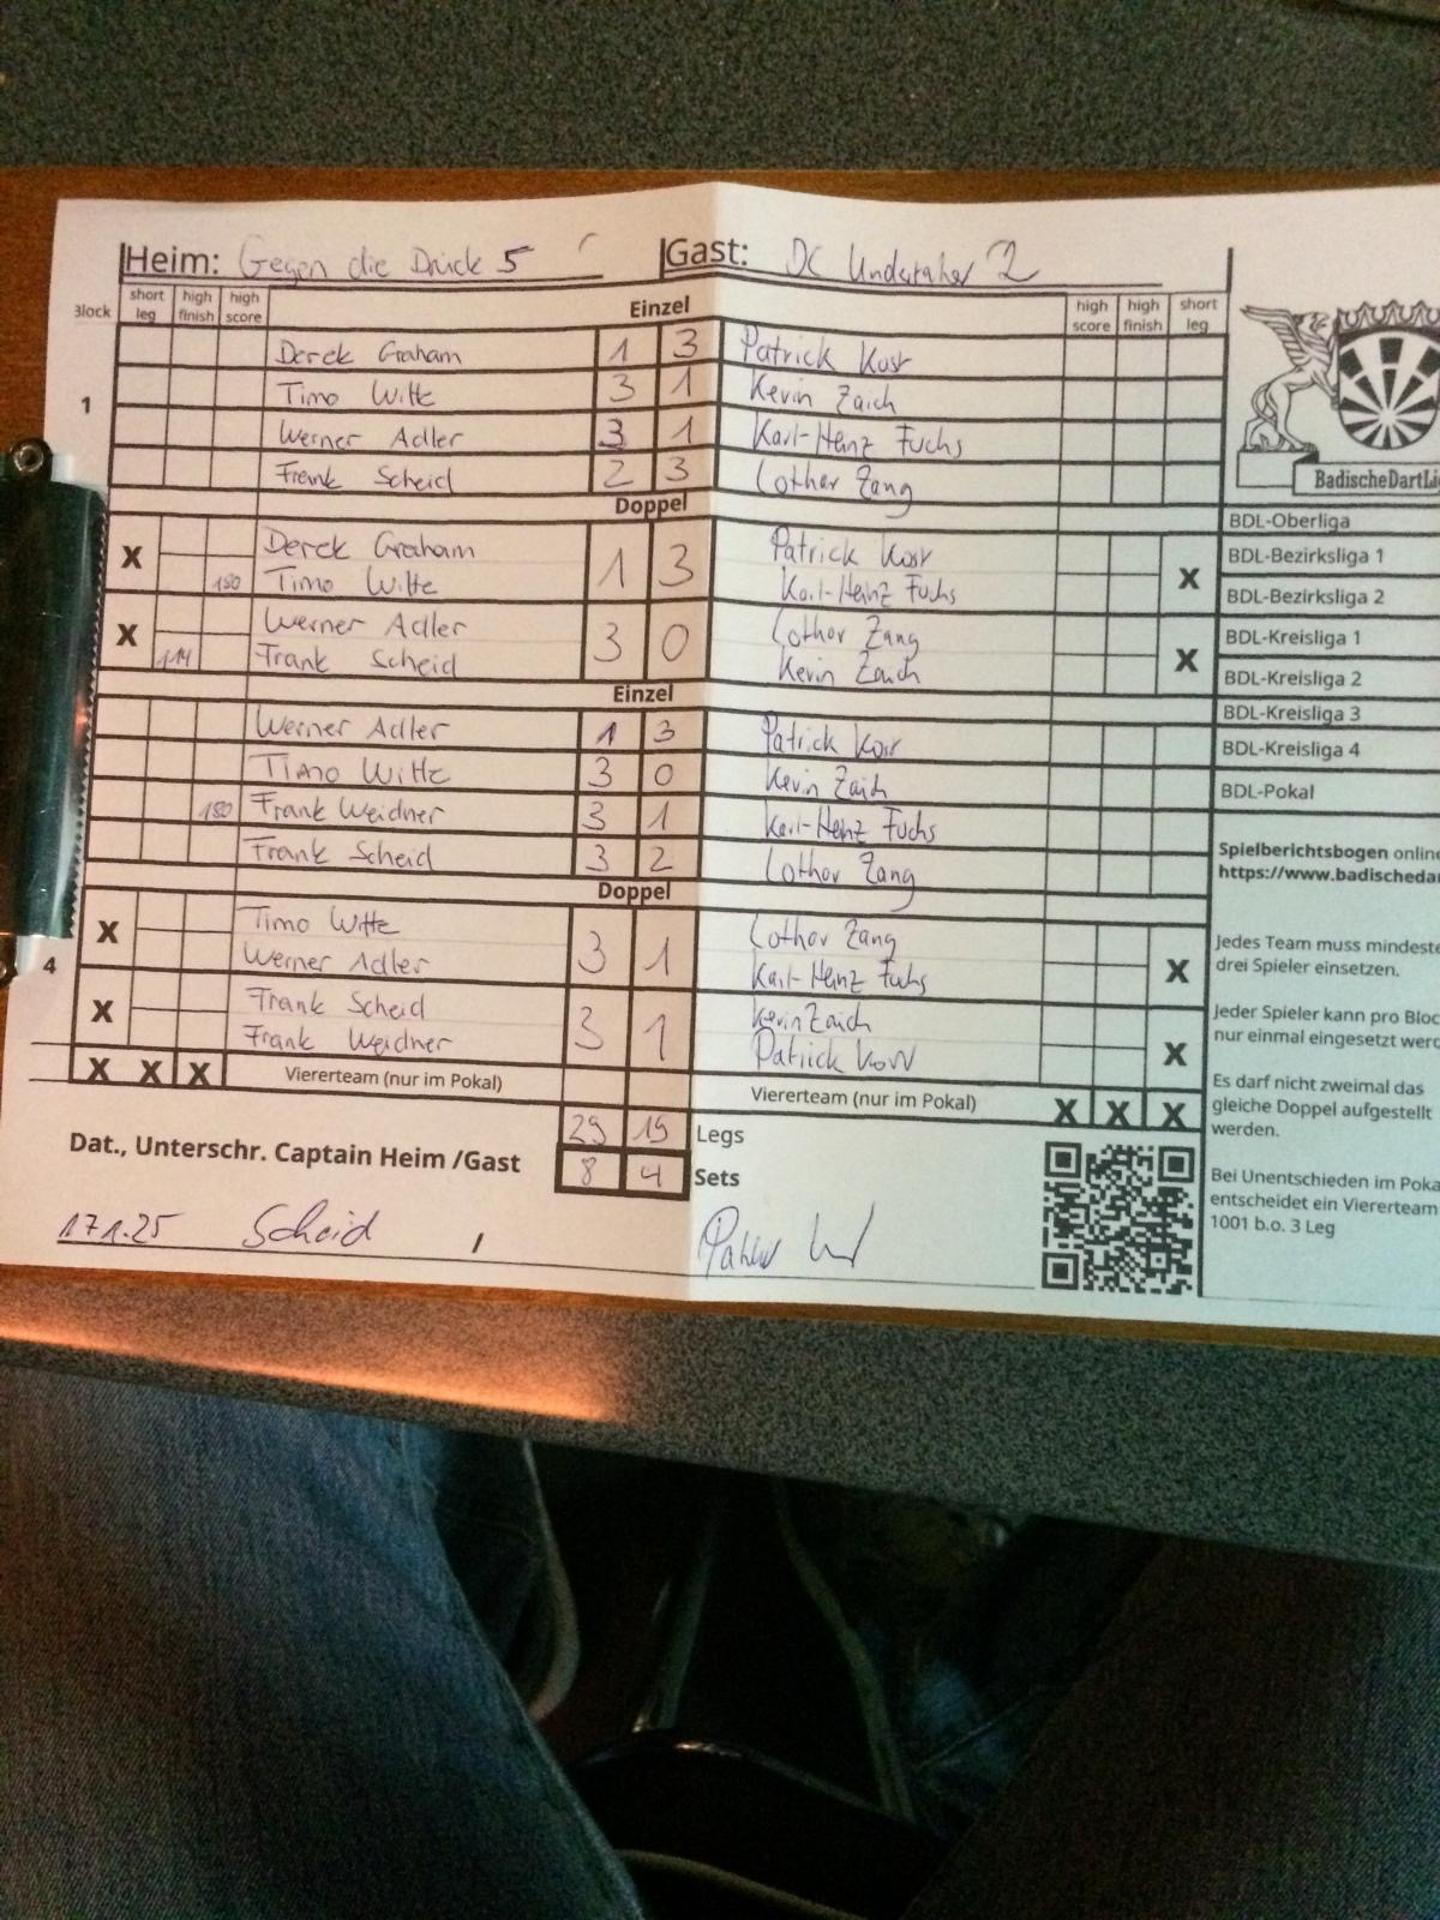 Heim: Gegen die Drück 5 Gast: DC Undertaker 2
Block short leg high finish high score Einzel high score high finish short leg
Derek Graham 1 3 Patrick Kosr
1 Timo Witte 3 1 Kevin Zaich
Werner Adler 3 1 Karl-Heinz Fuchs
Frank Scheid 2 3 Lothar Zang
BadischeDartLi
Doppel
BDL-Oberliga
X Derek Graham 1 3 Patrick Kosr X
180 Timo Witte Karl-Heinz Fuchs
BDL-Bezirksliga 1
BDL-Bezirksliga 2
X Werner Adler 3 0 Lothar Zang X
114 Frank Scheid Kevin Zaich
BDL-Kreisliga 1
BDL-Kreisliga 2
Einzel
BDL-Kreisliga 3
Werner Adler 1 3 Patrick Kosr
BDL-Kreisliga 4
Timo Witte 3 0 Kevin Zaich
BDL-Pokal
180 Frank Weidner 3 1 Karl-Heinz Fuchs
Frank Scheid 3 2 Lothar Zang
Spielberichtsbogen online
https://www.badischedar
Doppel
X Timo Witte 3 1 Lothar Zang X
4 Werner Adler Karl-Heinz Fuchs
Jedes Team muss mindeste
drei Spieler einsetzen.
X Frank Scheid 3 1 Kevin Zaich X
Frank Weidner Patrick
Jeder Spieler kann pro Bloc
nur einmal eingesetzt werd
X X X Viererteam (nur im Pokal) Viererteam (nur im Pokal) X X X
Es darf nicht zweimal das
gleiche Doppel aufgestellt
werden.
29 19 Legs
Dat., Unterschr. Captain Heim /Gast 8 4 Sets
Bei Unentschieden im Poka
entscheidet ein Viererteam
1001 b.o. 3 Leg
17.1.25 Scheid /